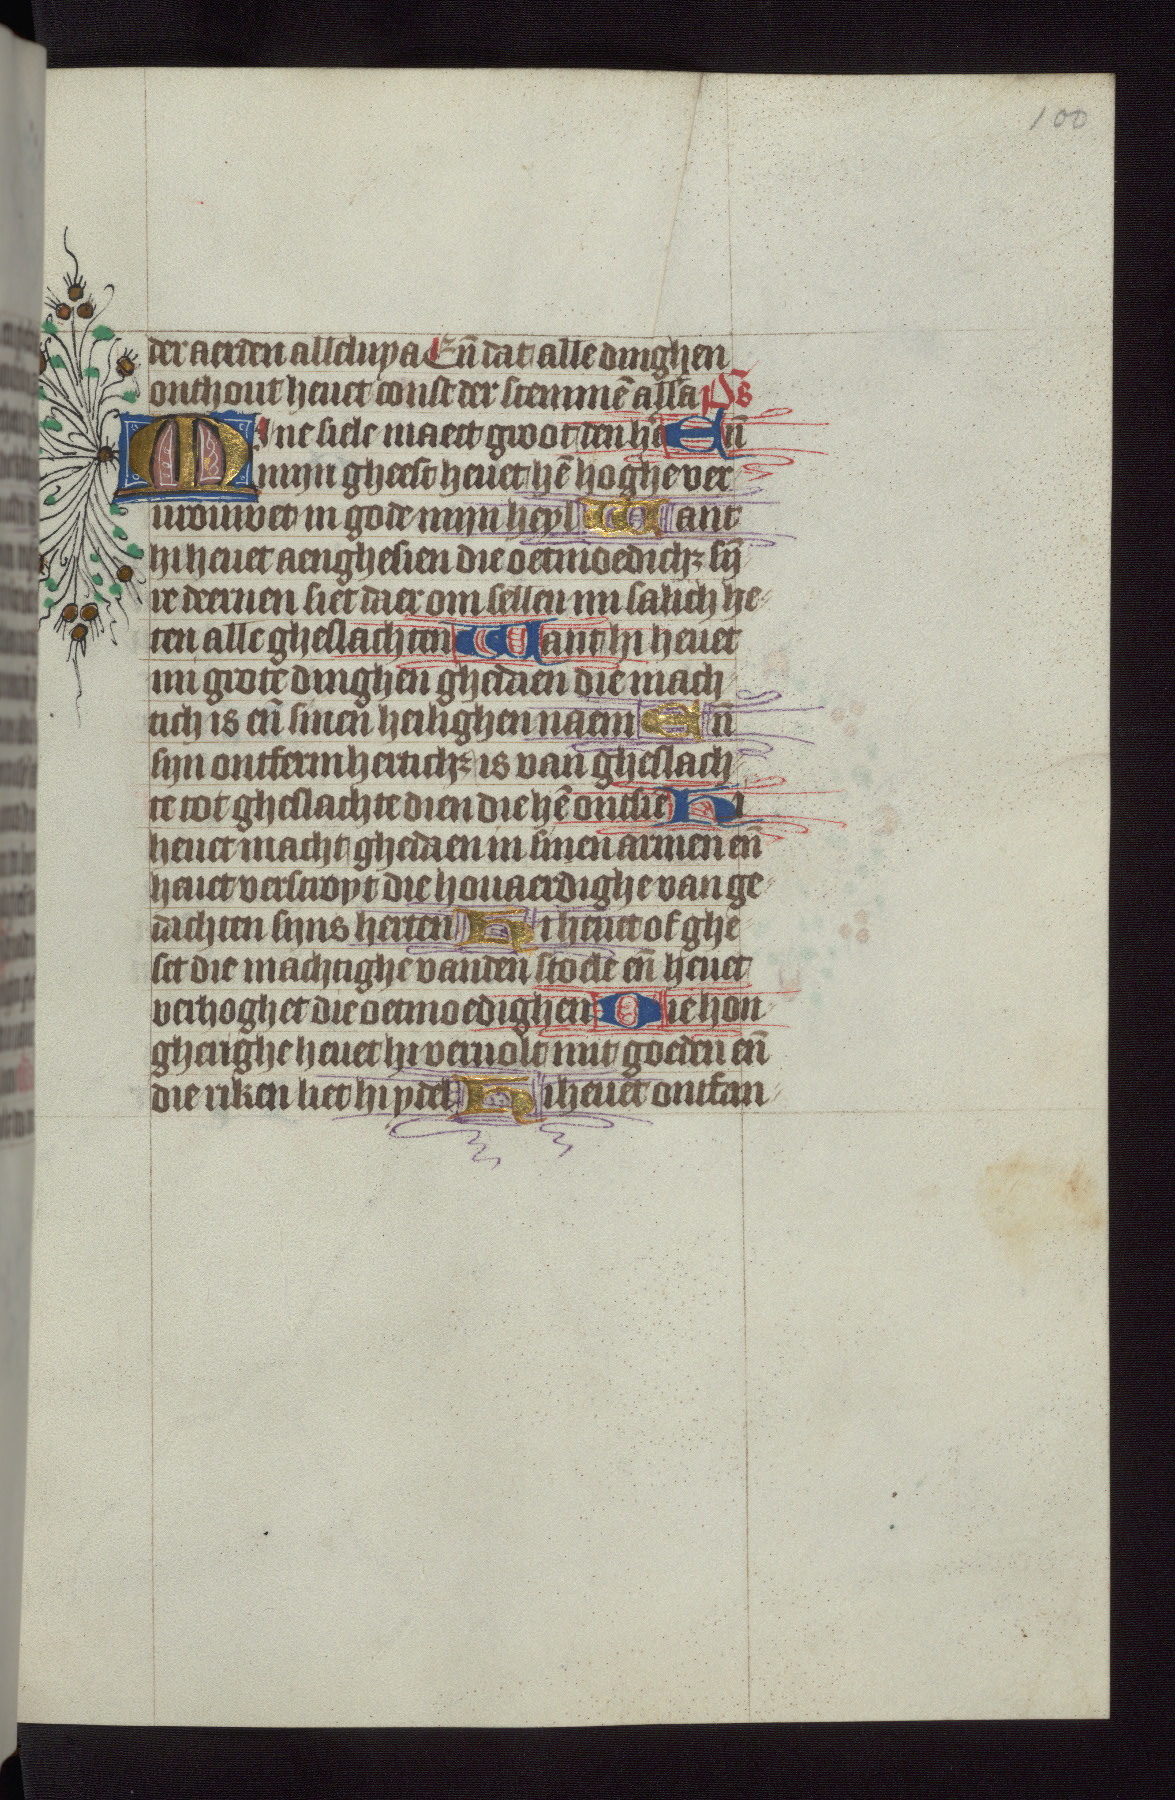 100
der aerden alleluya En̄ dat alle dinghen
onthout heuet const der stemmē alla Ps̄
Mine siele maect groot den hē En̄
mijn gheest heuet hē hoghe ver
urouwet in gode mijn heyl Want
hi heuet aenghesien die oetmoedichꝫ sij̄
re deernen siet daer om sellen mi salich he-
ten alle gheslachten Want hi heuet
mi grote dinghen ghedaen die mach-
tich is en̄ sinen heilighen naem En̄
sijn ontfermherticҺꝫ is van gheslach-
te tot gheslachte dien die hē ontsiē Hi
heuet macht ghedaen in sinen armen en̄
heuet verstroyt die houaerdighe van ge-
dachten sijns herten Hi heuet of ghe
set die machtighe vanden stoele en̄ heuet
verhoghet die oetmoedighen Die hon-
gherighe heuet hi veruolt mit goeden en̄
die riken liet hi ydel Hi heuet ontfan-